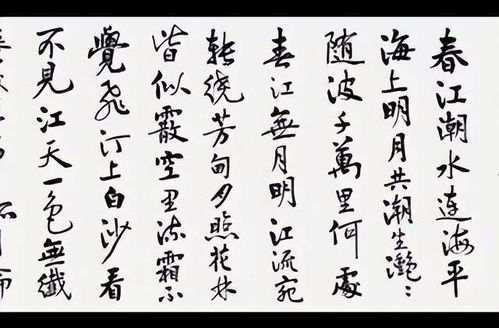 春江潮水連海平
海上明月共潮生灩〻
随波千萬里何處
春江無月明江流宛
轉繞芳甸月照花林
皆似霰空里流霜不
覺飛汀上白沙看
不見江天一色無纖